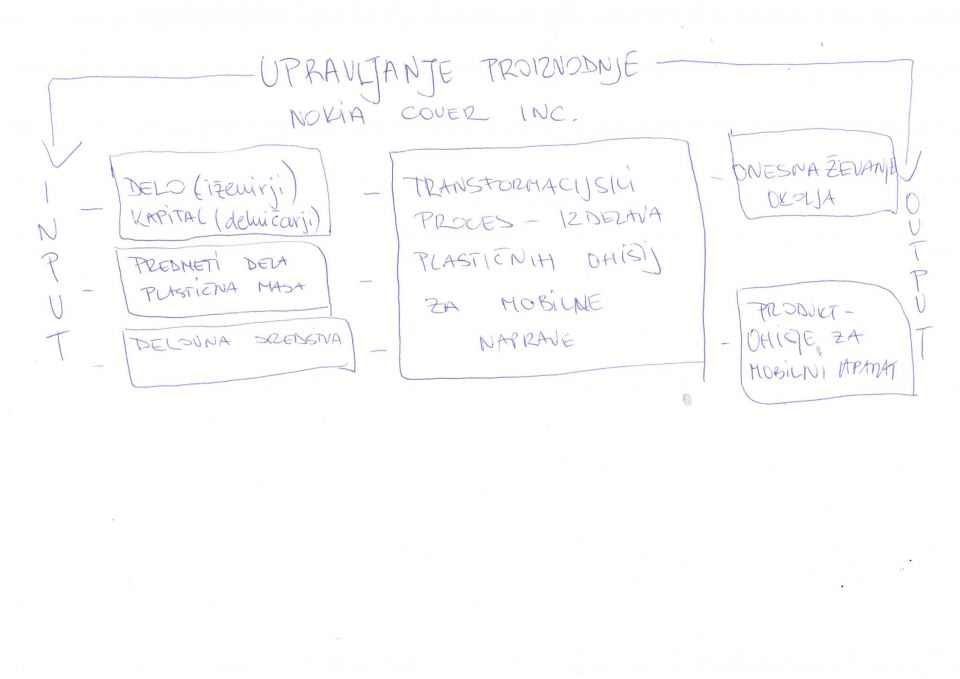 UPRAVLJANJE PROIZVODNJE
NOKIA COVER INC.
INPUT
DELO (iženirji)
KAPITAL (delničarji)
PREDMETI DELA
PLASTIČNA MASA
DELOVNA SREDSTVA
TRANSFORMACIJSKI
PROCES - IZDELAVA
PLASTIČNIH OHIŠIJ
ZA MOBILNE
NAPRAVE
ONESNAŽEVANJE
OKOLJA
PRODUKT -
OHIŠJE ZA
MOBILNI APARAT
OUTPUT